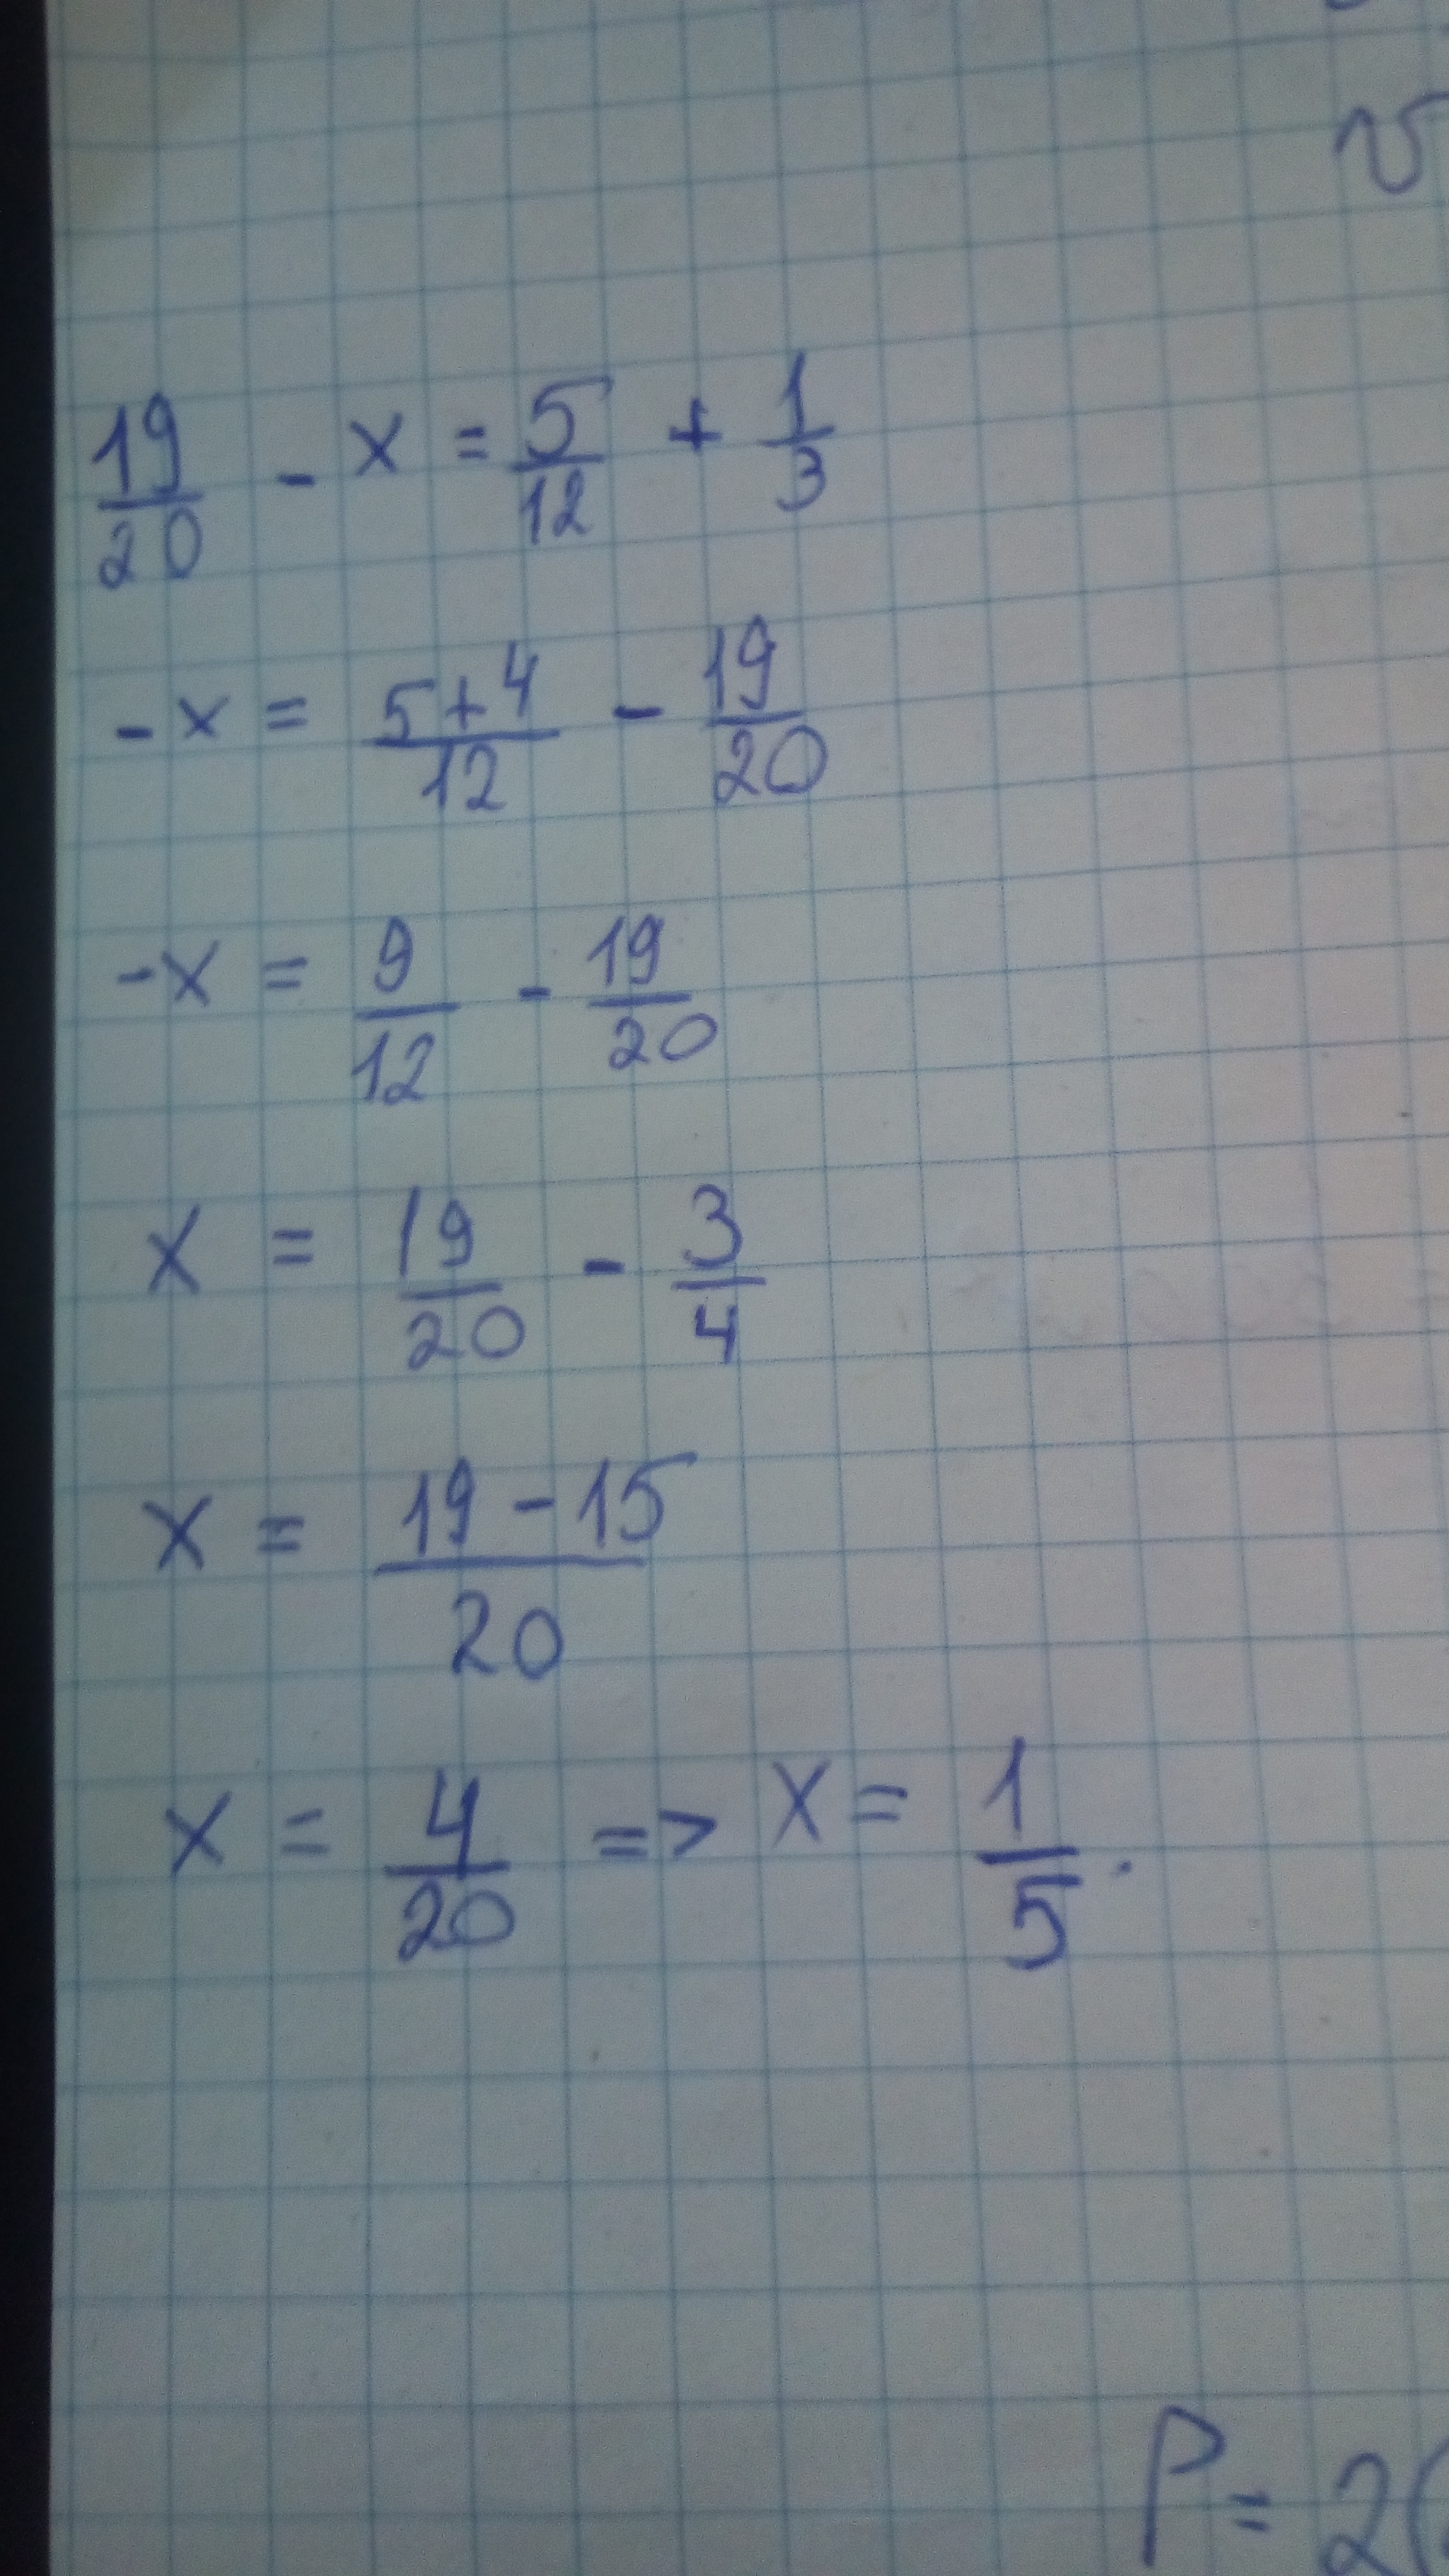 19/20 - x = 5/12 + 1/3
-x = (5+4)/12 - 19/20
-x = 9/12 - 19/20
x = 19/20 - 3/4
x = (19-15)/20
x = 4/20 => x = 1/5.
P = 2(